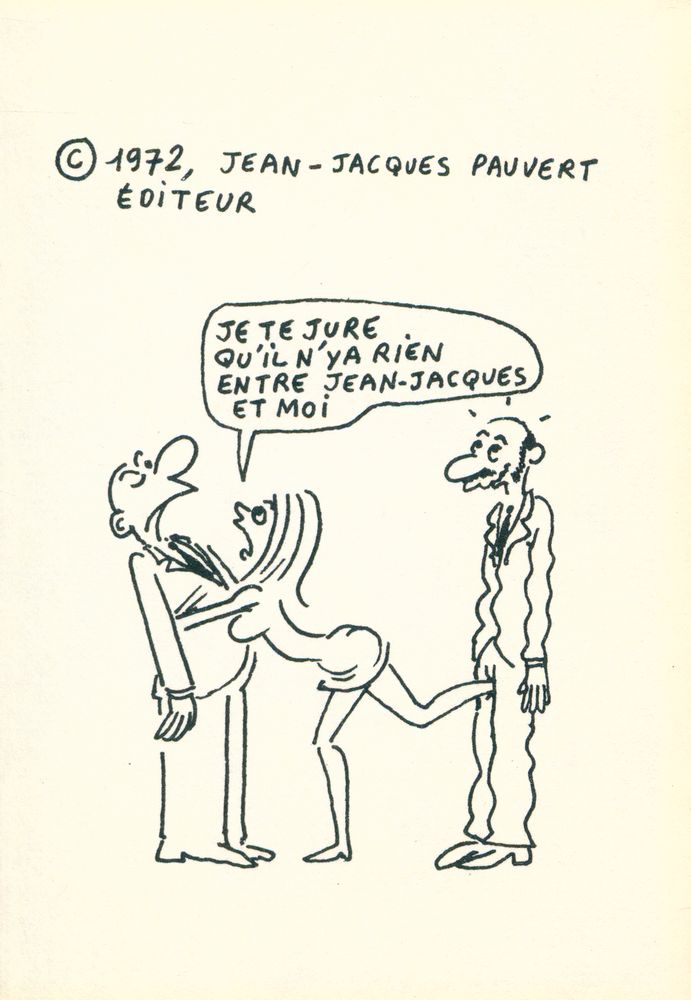 © 1972, JEAN-JACQUES PAUVERT
ÉDITEUR
JE TE JURE
QU'IL N'Y A RIEN
ENTRE JEAN-JACQUES
ET MOI